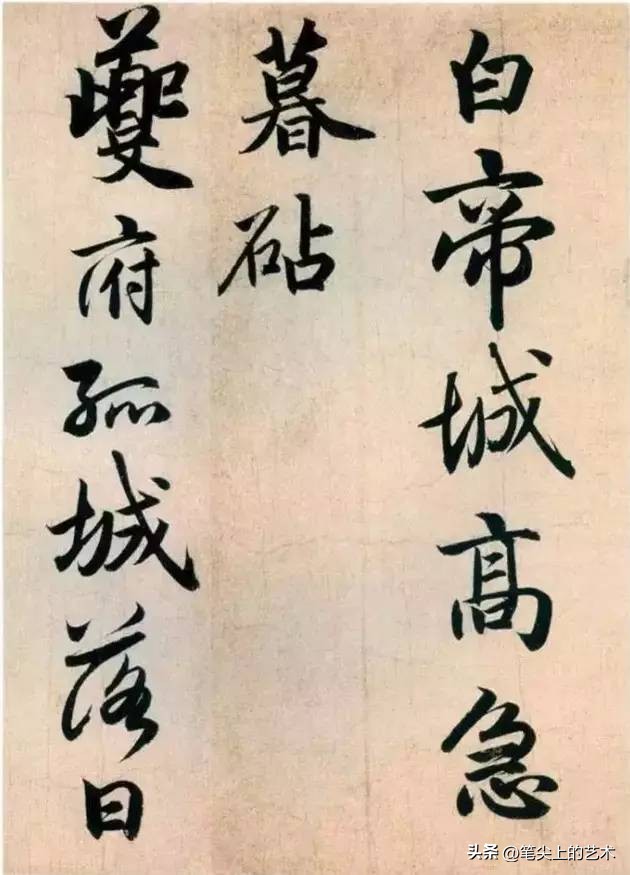 白帝城高急
暮砧
夔府孤城落日
头条 @笔尖上的艺术